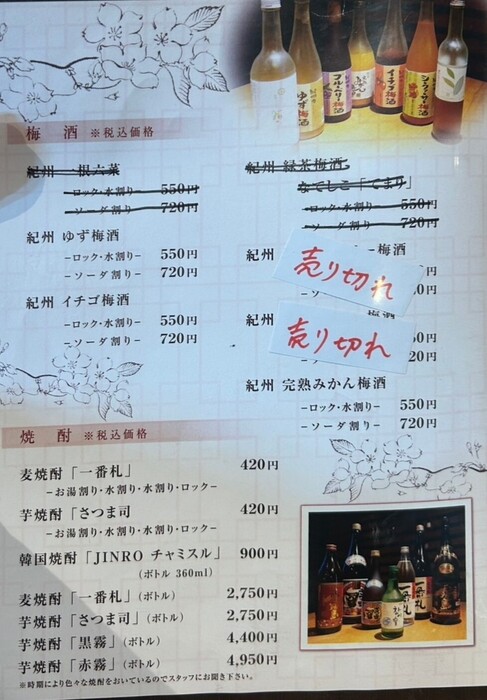 ゆず梅酒
ブルーベリー梅酒
イチゴ梅酒
シークヮーサー梅酒
梅酒 ※税込価格
紀州 一根六菜
－ロック・水割り－ 550円
－ソーダ割り－ 720円
紀州 ゆず梅酒
－ロック・水割り－ 550円
－ソーダ割り－ 720円
紀州 イチゴ梅酒
－ロック・水割り－ 550円
－ソーダ割り－ 720円
紀州 緑茶梅酒
なでしこ「てまり」
－ロック・水割り－ 550円
－ソーダ割り－ 720円
紀州 ー梅酒
売り切れ
紀州 梅酒
売り切れ
紀州 完熟みかん梅酒
－ロック・水割り－ 550円
－ソーダ割り－ 720円
焼酎 ※税込価格
麦焼酎「一番札」 420円
－お湯割り・水割り・水割り・ロック－
芋焼酎「さつま司 420円
－お湯割り・水割り・水割り・ロック－
韓国焼酎「JINRO チャミスル」 900円
（ボトル 360ml）
麦焼酎「一番札」（ボトル） 2,750円
芋焼酎「さつま司」（ボトル） 2,750円
芋焼酎「黒霧」（ボトル） 4,400円
芋焼酎「赤霧」（ボトル） 4,950円
※時期により色々な焼酎をおいているのでスタッフにお聞き下さい。
一番札